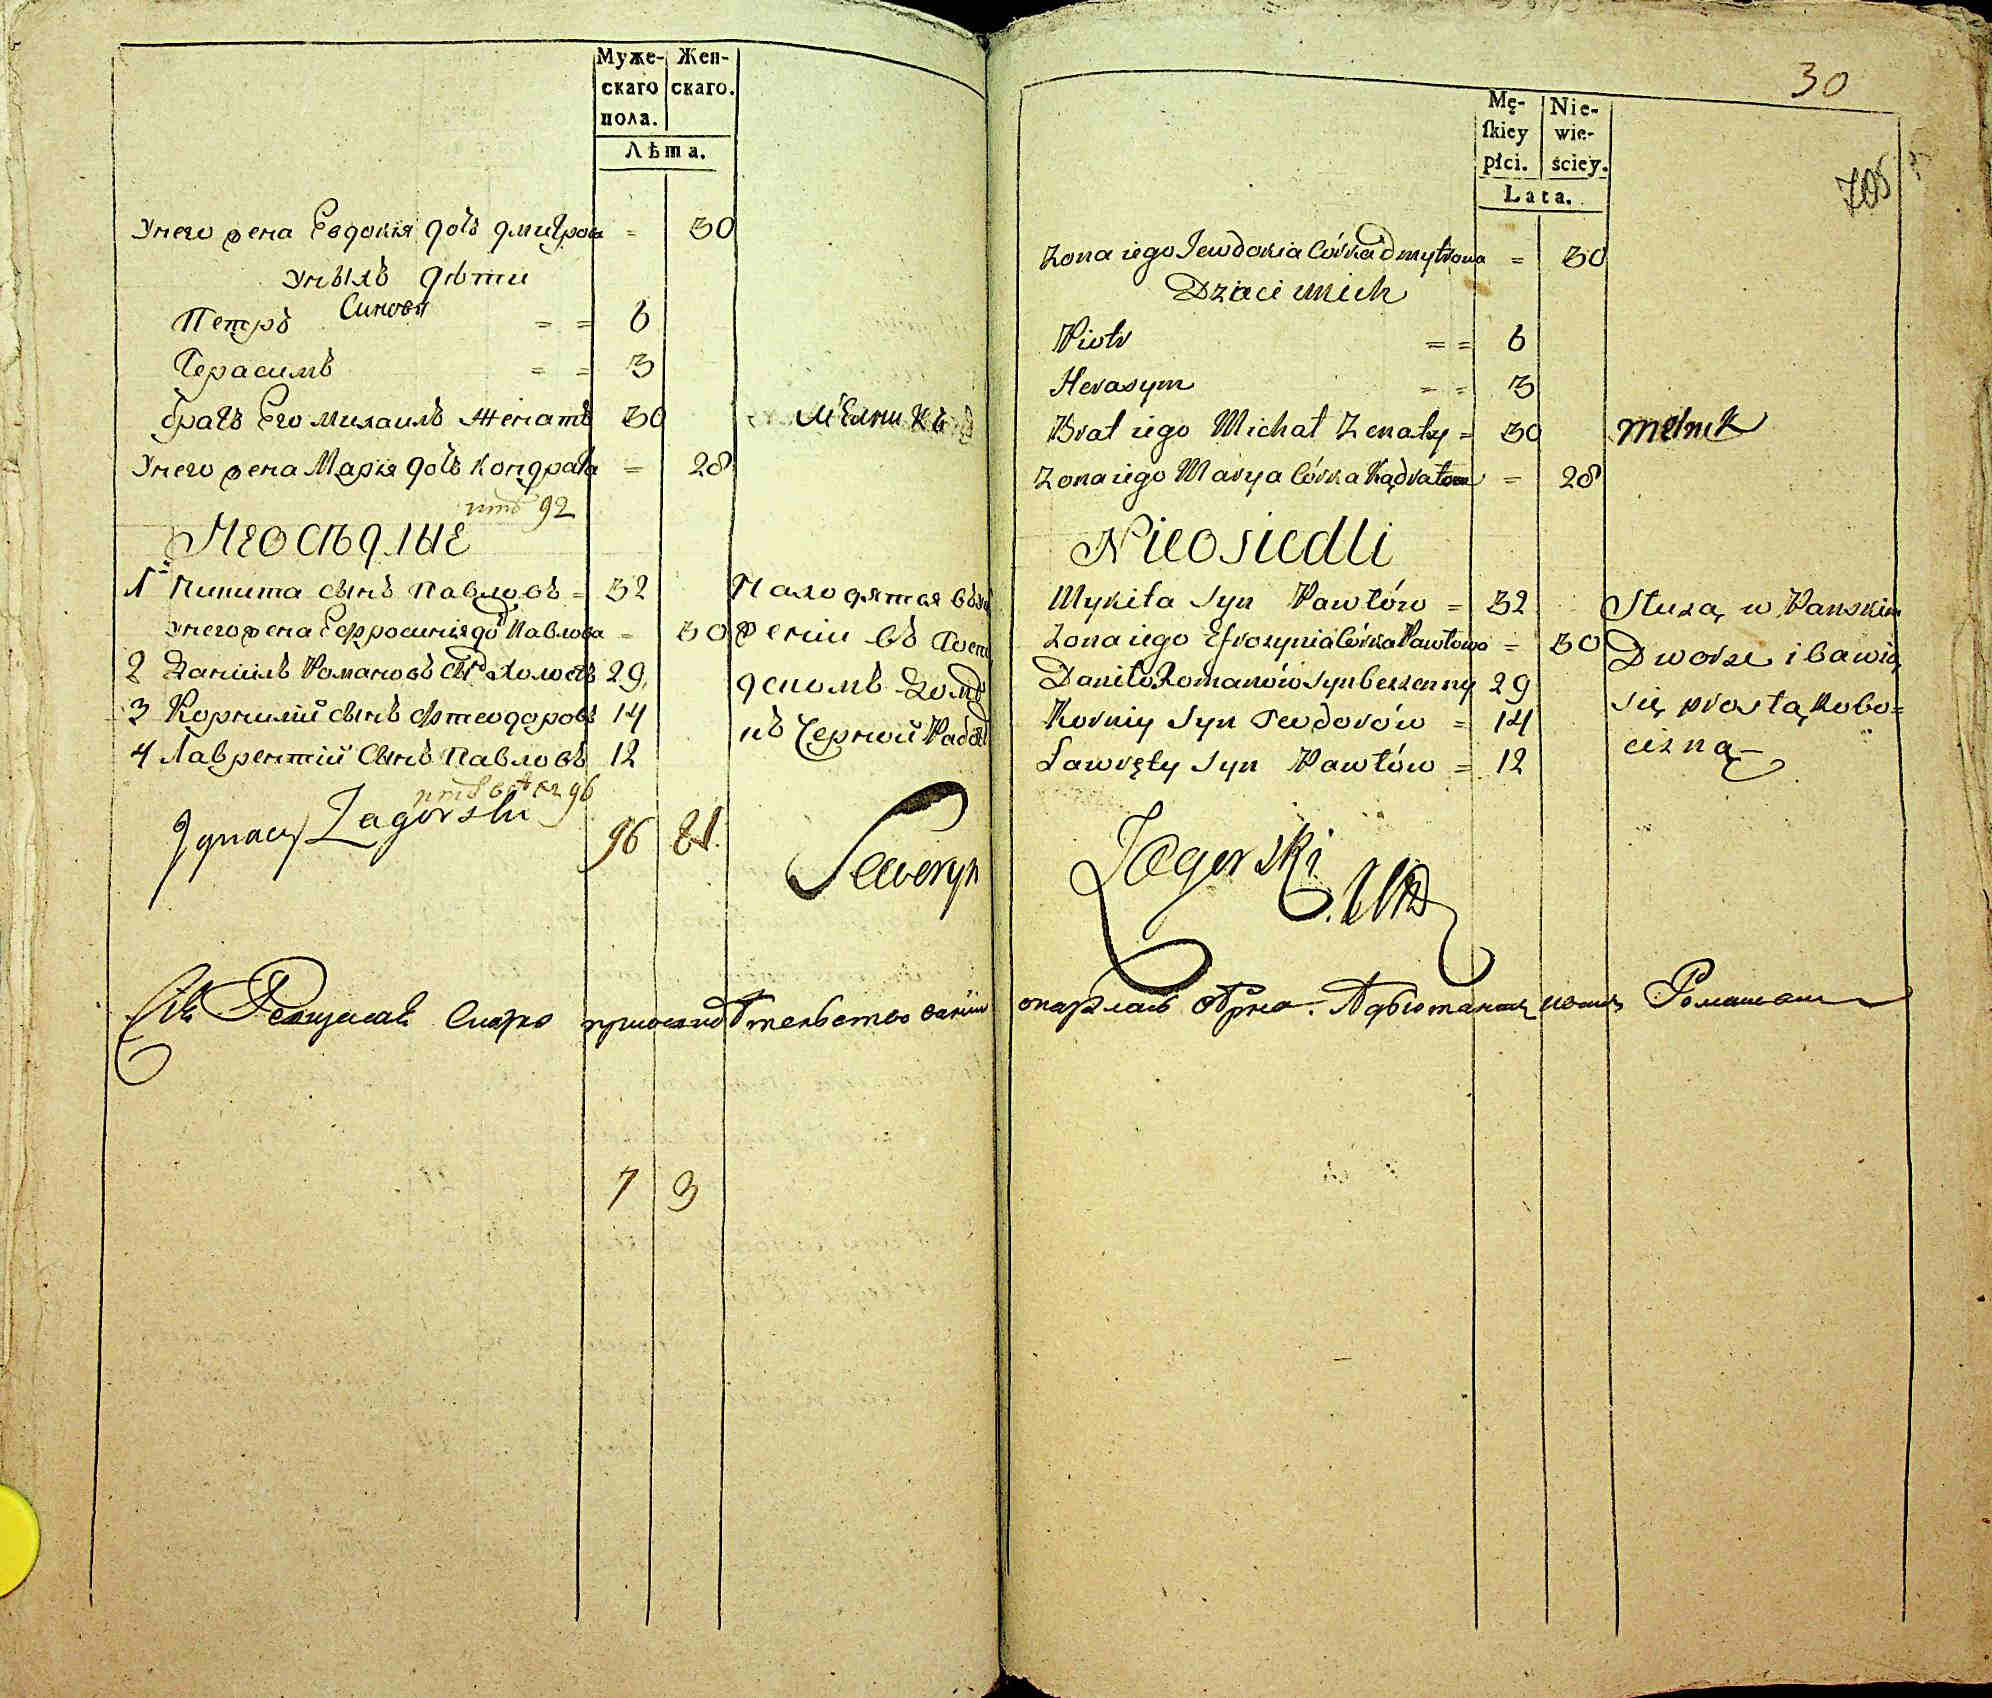 Муже- Жен-
скаго скаго.
пола.
Лѣта.
Унего жена Евдокія дочь Дмитрова = 30
Унихъ дѣти
Синовя
Петръ = = 6
Герасимъ = = 3
братъ Его Михаилъ Женатъ 30 Мѣлникъ
Унего жена Марія дочь Кондрата = 28
92
Неосѣдлые
1 Никита сынъ Павловъ = 32 Находятся въслу
Унего жена Ефросинія до Павлова = 30 женіи въ Госпо
2 Даніилъ Романовъ Сы Холостъ 29 дскомъ Дому
3 Корнилій сынъ Фтеодоровъ 14 въ Черной Рабо
4 Лаврентій Сынъ Павловъ 12
96
Ignacy Zagorski 96 81.
Seweryn
7 3
30
705
Mę- Nie-
ſkiey wie-
płci. ściey.
Lata.
Zona iego Jewdokia Córka Dmytrowa = 30
Dzieci unich
Piotr = = 6
Herasym = = 3
Brat iego Michał Zenaty = 30 mełnik
Zona iego Marya Córka Kądratowa = 28
Nieosiedli
Mykita Syn Pawłów = 32 Służą w Panskim
Zona iego Efrozynia Córka Pawłowa = 30 Dworze i bawią
Daniło Romanów Syn bezzenny 29 się prostą Robo=
Korniy Syn Teodorów = 14 cizną
Ławręty Syn Pawłów = 12
Zagorski